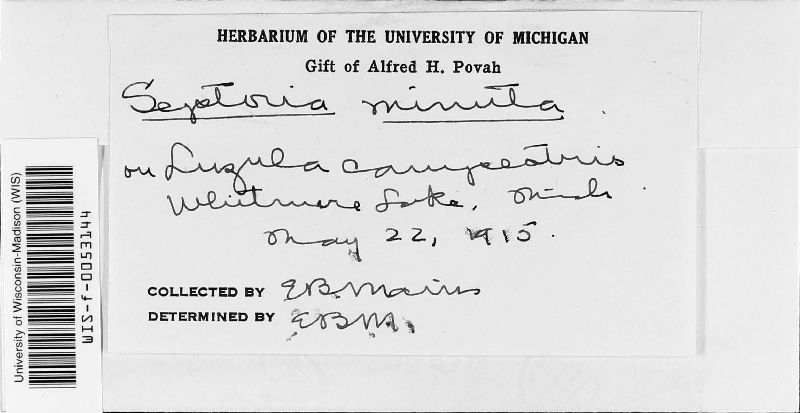 HERBARIUM OF THE UNIVERSITY OF MICHIGAN
Gift of Alfred H. Povah
Septoria minuta
on Luzula campestris
Whitmore Lake, Mich.
May 22, 1915.
COLLECTED BY EB. Mains
DETERMINED BY EBM.
University of Wisconsin-Madison (WIS)
WIS-f-0053144